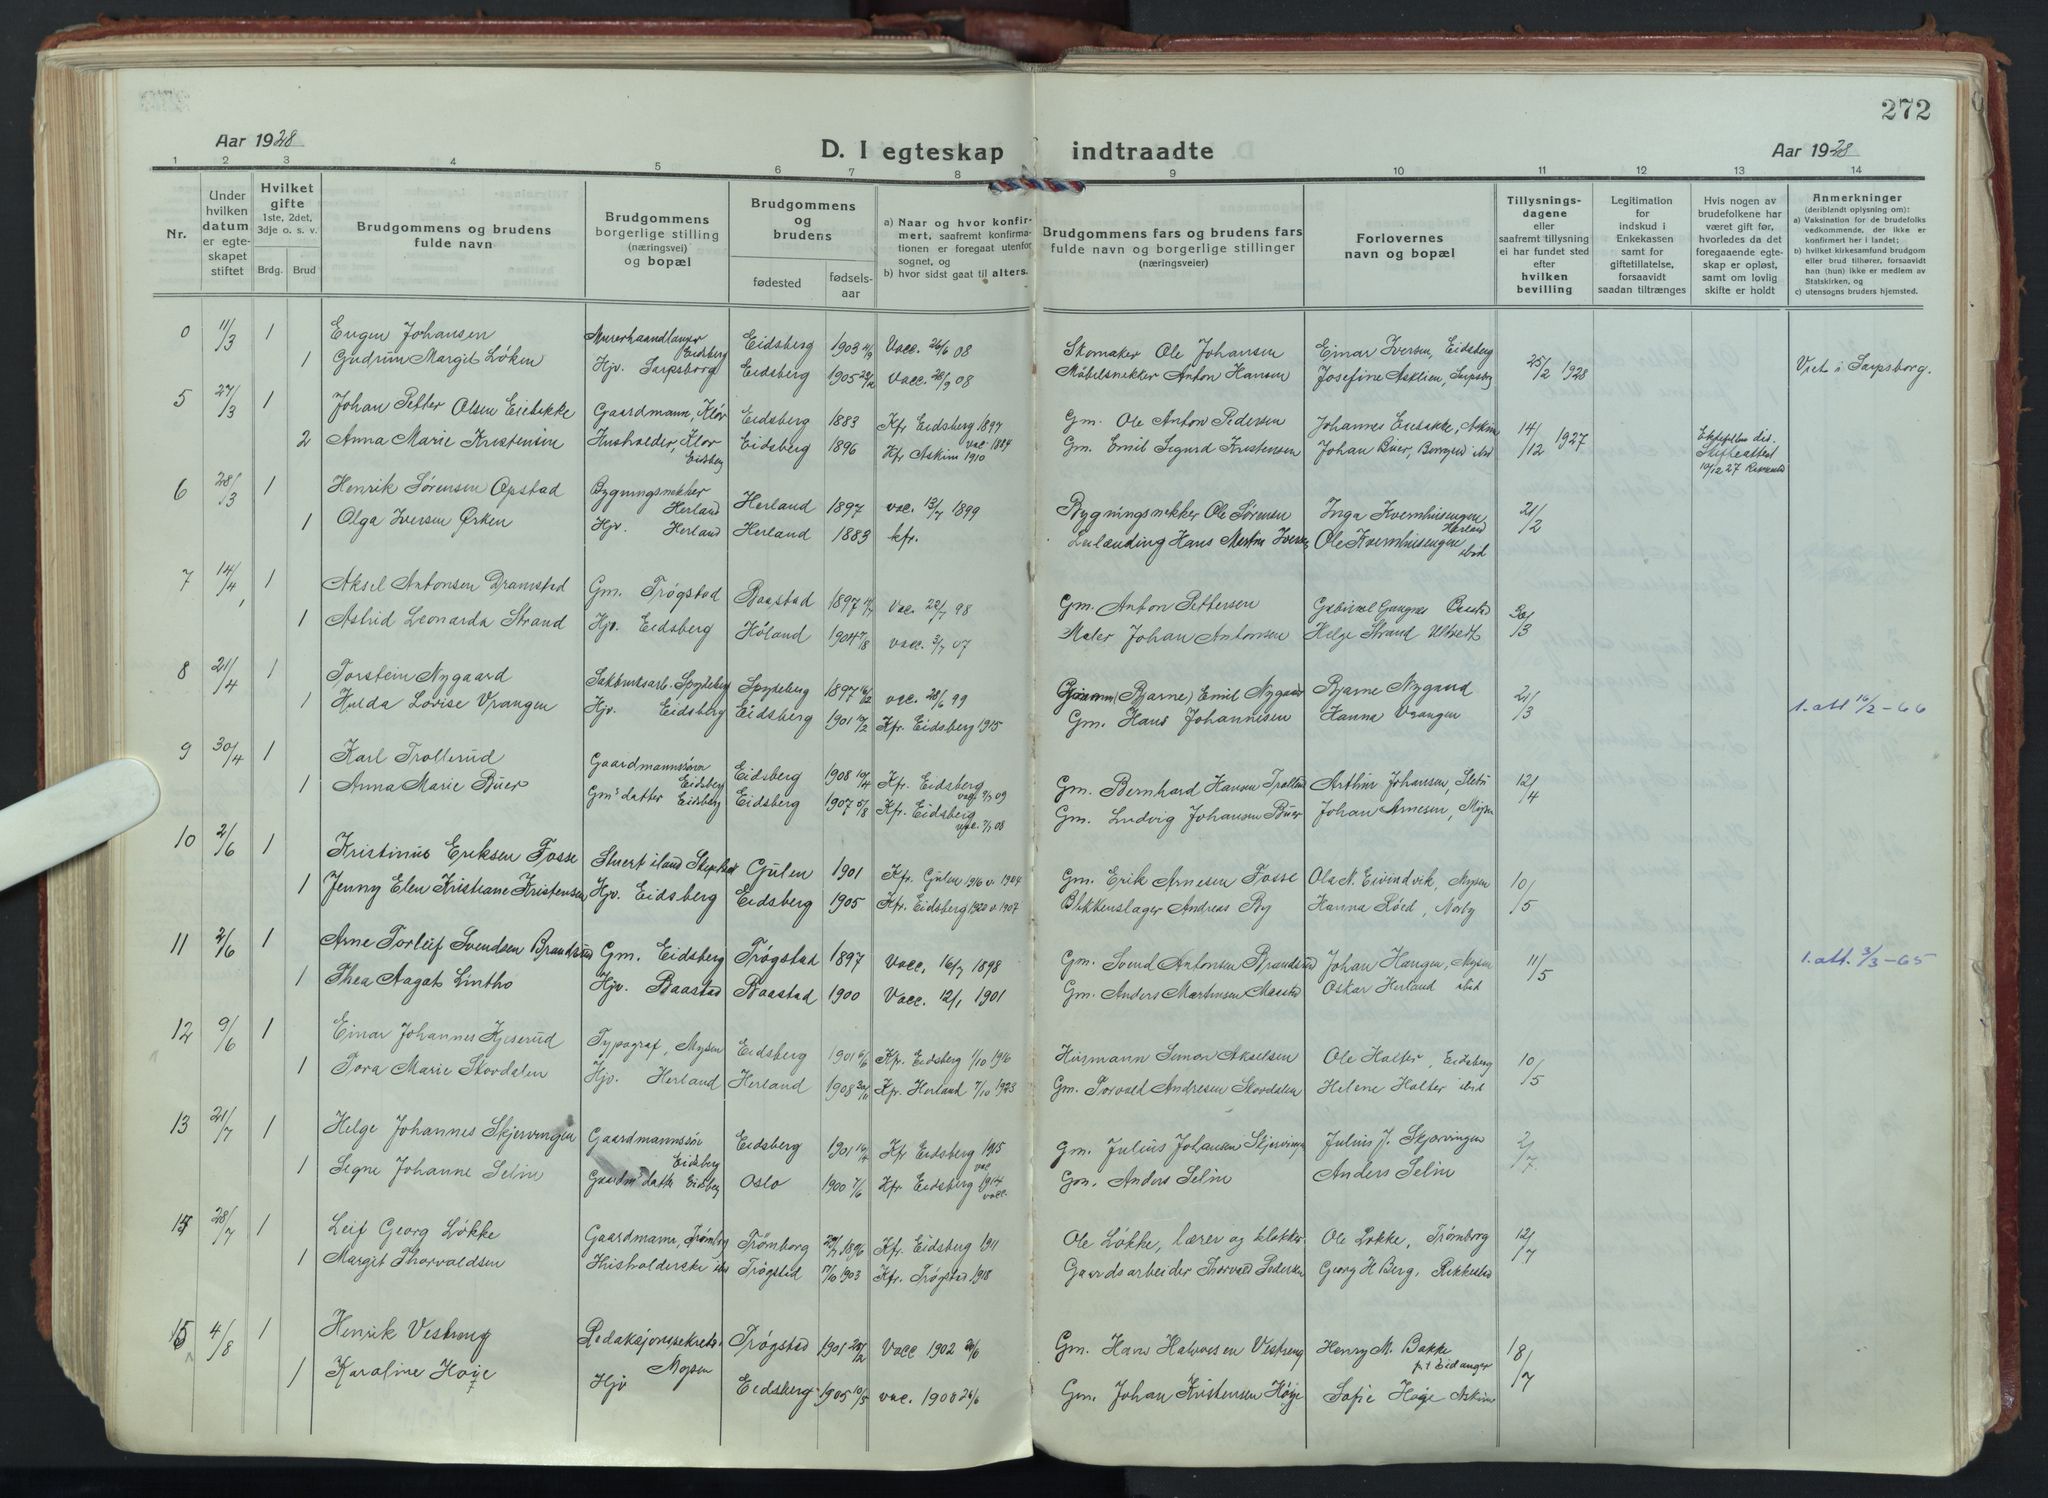 272
Aar 1928
D. I egteskap indtraadte
Aar 1928
1 2 3 4 5 6 7 8 9 10 11 12 13 14
Nr.
Under hvilken datum er egteskapet stiftet
Hvilket gifte 1ste, 2det, 3dje o. s. v.
Brdg. Brud
Brudgommens og brudens fulde navn
Brudgommens borgerlige stilling (næringsvei) og bopæl
Brudgommens og brudens
fødested
fødselsaar
a) Naar og hvor konfirmert, saafremt konfirmationen er foregaat utenfor sognet, og
b) hvor sidst gaat til alters.
Brudgommens fars og brudens fars fulde navn og borgerlige stillinger (næringsveier)
Forlovernes navn og bopæl
Tillysningsdagene eller saafremt tillysning ei har fundet sted efter hvilken bevilling
Legitimation for indskud i Enkekassen samt for giftetillatelse, forsaavidt saadan tiltrænges
Hvis nogen av brudefolkene har været gift før, hvorledes da det foregaaende egteskap er opløst, samt om lovlig skifte er holdt
Anmerkninger (deriblandt oplysning om): a) Vaksination for de brudefolks vedkommende, der ikke er konfirmert her i landet; b) hvilket kirkesamfund brudgom eller brud tilhører, forsaavidt han (hun) ikke er medlem av Statskirken, og c) utensogns bruders hjemsted.
0 11/3 1 Eugen Johansen Murerhaandlanger Eidsberg Eidsberg 1903 4/9 Vacc. 26/6 08 Skomaker Ole Johansen Einar Iversen, Eidsberg 25/2 1928 Viet i Sarpsborg.
1 Gudrun Margit Løken Hjv. Sarpsborg Eidsberg 1905 22/12 Vacc. 28/9 08 Møbelsnekker Anton Hansen Josefine Asklien, Sarpsbg
5 27/3 1 Johan Petter Olsen Eiebakke Gaardmann, Klør Eidsberg 1883 Kfr. Eidsberg 1897 vac. 1884 Gm. Ole Anton Pedersen Johannes Eiebakke, Askim 14/12 1927
2 Anna Marie Kristensen Husholder, Klør Eidsberg Eidsberg 1896 Kfr Askim 1910 Gm. Emil Sigurd Kristensen Johan Buer, ibid Skifteattest 10/12 27
6 28/3 1 Henrik Sørensen Opstad Bygningsnekker Herland Herland 1897 vac. 13/7 1899 Bygningsnekker Ole Sørensen Inga Kvernhusengen Herland 21/2
1 Olga Iversen Ørken Hjv. Herland Herland 1883 kfr. Hans Martin Iversen Ole Kvernhusengen ibid
7 14/4 1 Aksel Antonsen Dramstad Gm. Trøgstad Baastad 1897 Vac. 22/7 98 Gm. Anton Pettersen Gabriel Gangnes Baastad 30/3
1 Astrid Leonarda Strand Hjv. Eidsberg Høland 1904 vacc. 3/7 07 Maler Johan Antonsen Helge Strand
8 21/4 1 Torstein Nygaard Spydeberg Spydeberg 1897 vac. 28/6 99 (Bjarne) Emil Nygaard Bjarne Nygaard 21/3
1 Hulda Lovise Vrangen Hjv. Eidsberg Eidsberg 1901 Kfr. Eidsberg 1915 Gm. Hans Johannesen Hanna Vrangen 1. att 16/2-66
9 30/4 1 Karl Trollerud Gaardmannssøn Eidsberg Eidsberg 1908 10/4 Kfr. Eidsberg vac. 7/7 09 Gm. Bernhard Hansen Trollerud Arthur Johansen, Sletu 12/4
1 Anna Marie Buer Gms datter Eidsberg Eidsberg 1907 Kfr. Eidsberg vac. 7/7 08 Gm. Ludvig Johansen Buer Johan Arnesen, Mysen
10 2/6 1 Kristinus Eriksen Fosse Gulen 1901 Kfr. Gulen 1916 v. 1904 Gm. Erik Arnesen Fosse Ola N. Eivindvik, Mysen 10/5
1 Jenny Elen Kristiane Kristensen Hjv. Eidsberg Eidsberg 1905 Kfr. Eidsberg 1920 v. 1907 Blikkenslager Andreas By Hanna Røed, Norby
11 2/6 1 Arne Torleif Svendsen Brandsrud Gm. Eidsberg Trøgstad 1897 Vacc. 16/7 1898 Gm. Svend Antonsen Brandsrud Johan Haugen, Mysen 11/5 1. att. 3/3-65
1 Thea Aagot Lintho Hjv. Baastad Baastad 1900 Vacc. 12/1 1901 Gm. Anders Martinsen Oskar Herland ibid
12 9/6 1 Einar Johannes Kjeserud Typograf, Mysen Eidsberg 1901 6/6 Kfr. Eidsberg 1/10 1916 Husmann Simon Akselsen Ole Holter, Eidsberg 10/5
1 Tora Marie Stordalen Hjv. Herland Herland 1908 30/11 Kfr. Herland 7/10 1923 Gm. Torvald Andresen Stordalen Helene Holter ibid
13 21/7 1 Helge Johannes Skjervingen Gaardmannssøn Eidsberg Eidsberg 1901 Kfr Eidsberg 1915 vac Gm. Julius Johansen Skjervingen Julius J. Skjervingen 2/7
1 Signe Johanne Selin Gaardms datter Eidsberg Oslo 1900 7/6 Kfr Eidsberg 1914 vacc. Gm. Anders Selin Anders Selin
14 28/7 1 Leif Georg Løkke Gaardmann, Trømborg Trømborg 1896 Kfr. Eidsberg 1911 Ole Løkke, lærer og klokker Ole Løkke, Trømborg 12/7
1 Margit Thorvaldsen Husholderske ibid Trøgstad 1903 Kfr. Trøgstad 1918 Gaardsarbeider Thorvald Pedersen Georg H. Berg, Rikkestad
15 4/8 1 Henrik Vestreng Redaksjonssekretær Mysen Trøgstad 1901 Vacc 1902 Gm. Hans Halvorsen Vestreng Henry M. Bakke p.t Eidanger 18/7
1 Karoline Høije Hjv Eidsberg 1905 10/5 vac. 1908 26/6 Gm. Johan Kristensen Høije Sofie Høije Askim